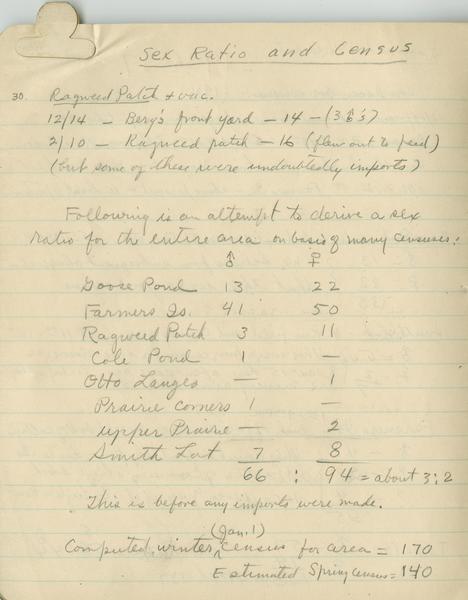 Sex Ratio and Census
30. Ragweed Patch + vac.
12/14 - Berg's front yard - 14 - (3 ♂'s)
2/10 - Ragweed patch - 16 (flew out to feed)
(but some of these were undoubtedly imports)
Following is an attempt to derive a sex
ratio for the entire area on basis of many censuses:
♂ ♀
Goose Pond 13 22
Farmers Is. 41 50
Ragweed Patch 3 11
Cole Pond 1 —
Otto Langes — 1
Prairie corners 1 —
upper Prairie — 2
Smith Lot 7 8
66 : 94 = about 3:2
This is before any imports were made.
(Jan. 1)
Computed winter ^ census for area = 170
Estimated Spring census = 140